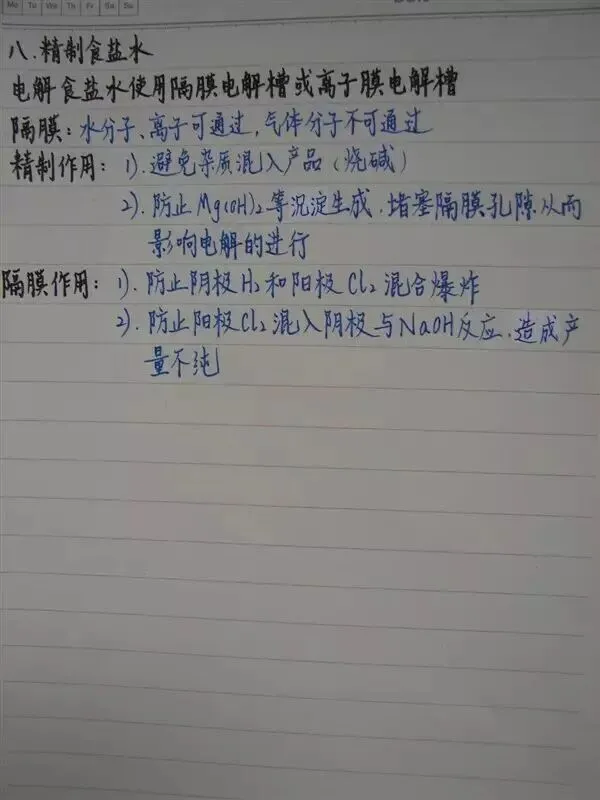 Mo Tu We Th Fr Sa Su
八.精制食盐水
电解食盐水使用隔膜电解槽或离子膜电解槽
隔膜:水分子、离子可通过,气体分子不可通过
精制作用:1).避免杂质混入产品(烧碱)
2).防止Mg(OH)₂等沉淀生成.堵塞隔膜孔隙从而
影响电解的进行
隔膜作用:1).防止阴极H₂和阳极Cl₂混合爆炸
2).防止阳极Cl₂混入阴极与NaOH反应.造成产
量不纯